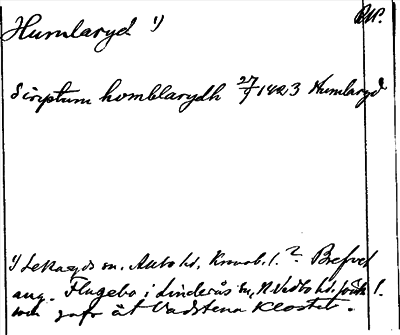 Humlaryd 1)
RAP.
Scriptum homblarydh 27/9 1423 Humlaryd
1) Lekaryds sn, Allbo hd, Kronob. l. ? Brefvet
ang. Flugebo i Linderås sn, N. Vedbo hd, Jönk. l.
som gafs åt Vadstena Kloster.